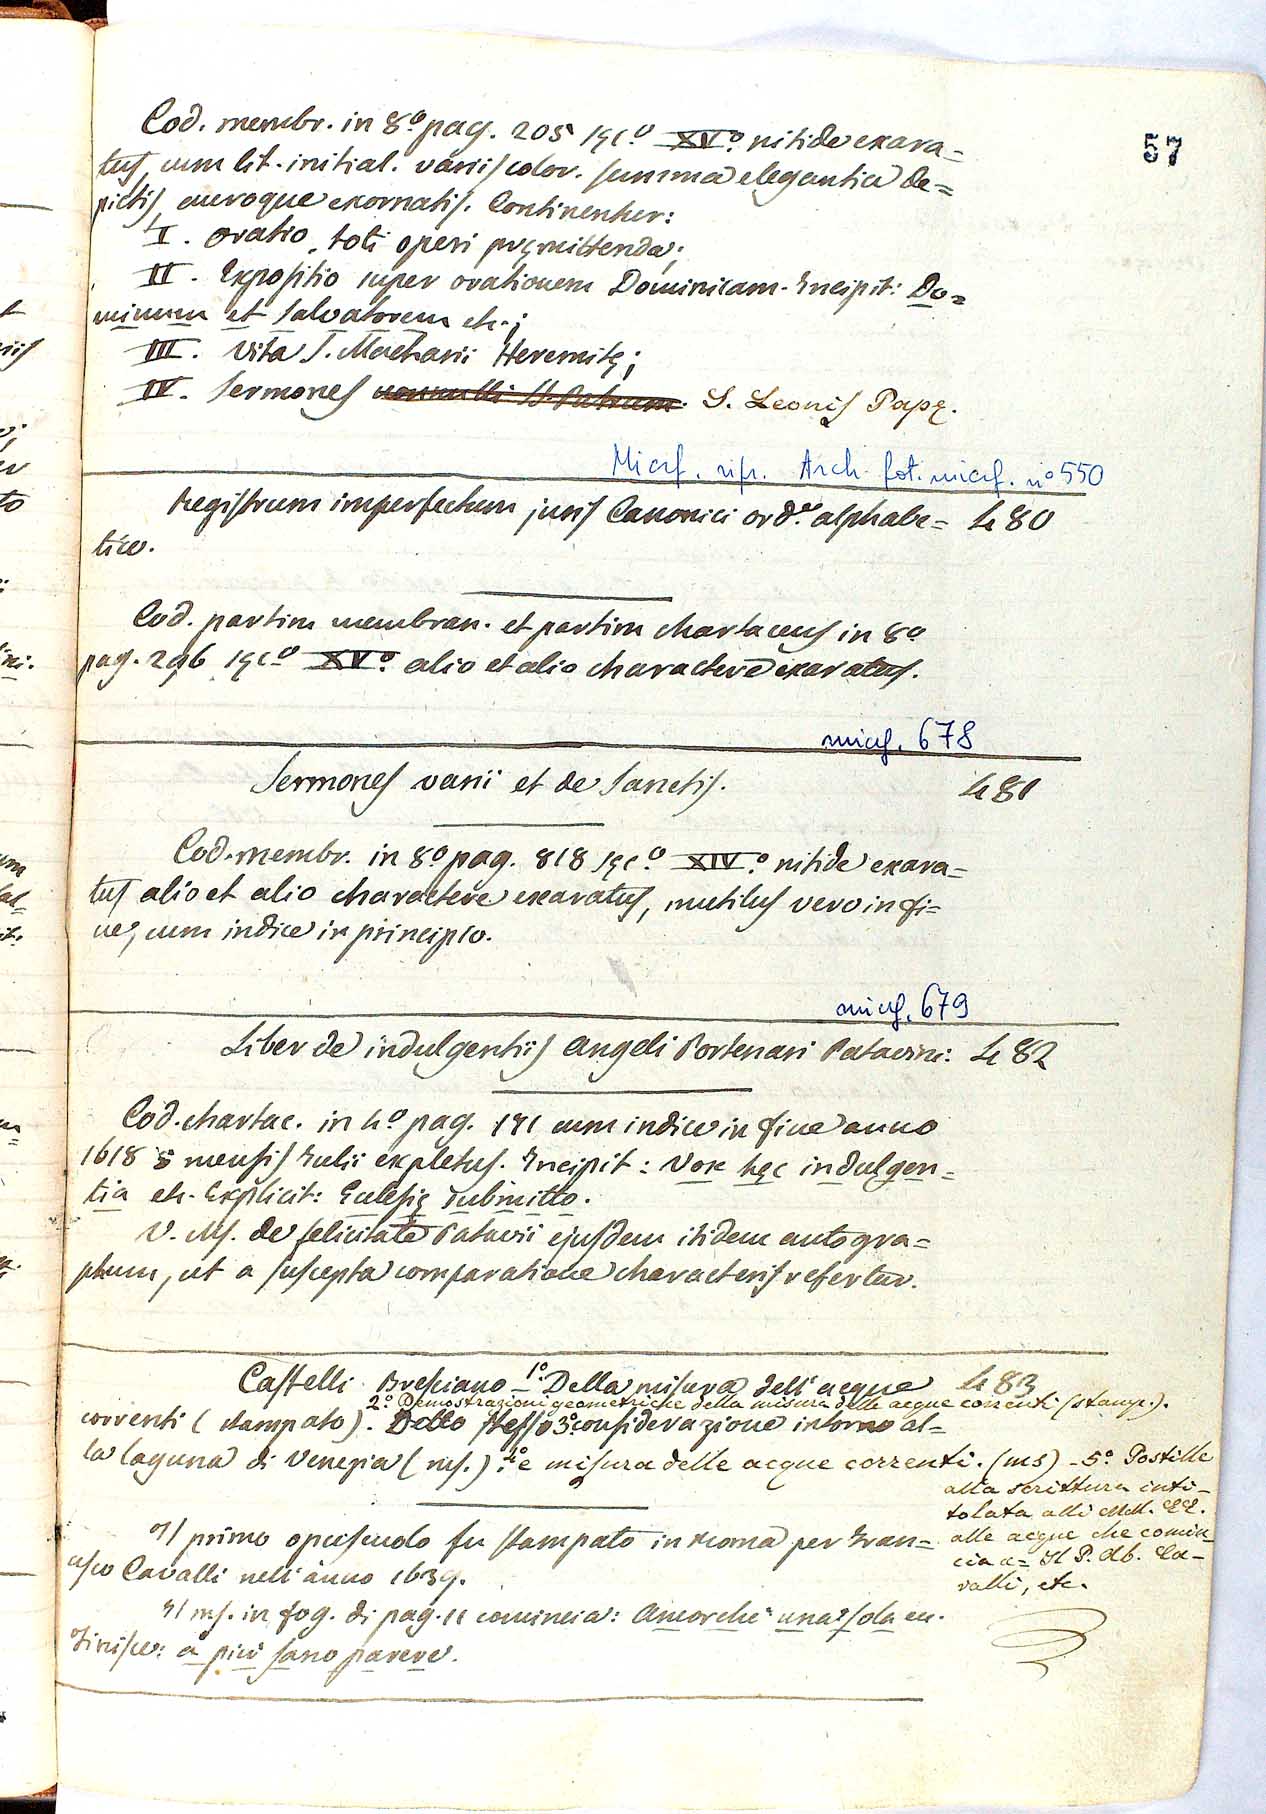 57
Cod. membr. in 8º pag. 205 sęc.º XVº. nitide exara=
tus, cum lit. initial. variis color. summa elegantia de=
pictis, auroque exornatis. Continentur:
I. Oratio toti operi pręmittenda;
II. Expositio super orationem Dominicam. Incipit: Do=
minum et salvatorem etc.;
III. Vita S. Macharii Heremitę;
IV. Sermones nonnulli SS. Patrum. S. Leonis Papę.
Micrf. ripr. Arch. fot. micrf. nº 550
Registrum imperfectum juris Canonici ord.e alphabe= 480
tico.
Cod. partim membran. et partim chartaceus in 8º
pag. 296 sęcº XVº. alio et alio charactere exaratus.
micrf. 678
Sermones varii et de Sanctis. 481
Cod. membr. in 8º pag. 818 sęc.º XIV.º nitide exara=
tus alio et alio charactere exaratus, mutilus vero in fi=
ne, cum indice in principio.
micrf. 679
Liber de indulgentiis Angeli Portenari Patavini: 482
Cod. chartac. in 4º pag. 191 cum indice in fine anno
1618 5 mensis Julii expletus. Incipit: Vox hęc indulgen=
tia etc. Explicit: Eclesię submitto.
V. MS. de felicitate Patavii ejusdem itidem autogra=
phum, ut a suscepta comparatione characteris refertur.
Castelli Bresciano - 1º. Della misura dell'acque 483
2º. Demostrazioni geometriche della misura delle acque correnti (stamp.).
correnti (stampato). Dello stesso 3º considerazione intorno al=
la laguna di Venezia (ms.) 4º e misura delle acque correnti. (ms) - 5º Postille
alla scrittura inti-
tolata alli MM. EE.
alle acque che comin=
cia a= Il P. Ab. Ca-
valli, etc.
Il primo opuscuolo fu stampato in Roma per Fran=
cesco Cavalli nell'anno 1639.
Il ms. in fog. di pag. 11 comincia: Ancorchè una sola ec.
Finisce: a più sano parere.